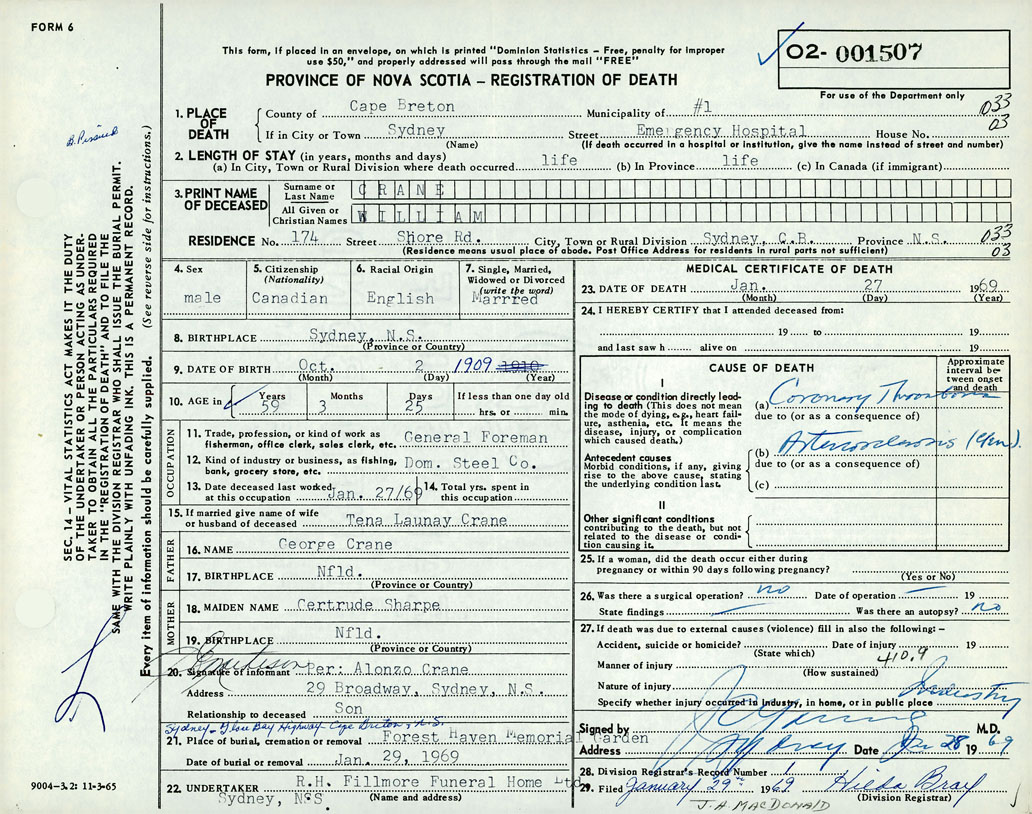 FORM 6
This form, if placed in an envelope, on which is printed "Dominion Statistics – Free, penalty for improper
use $50," and properly addressed will pass through the mail "FREE"
PROVINCE OF NOVA SCOTIA – REGISTRATION OF DEATH
02- 001507
For use of the Department only
1. PLACE OF DEATH
County of Cape Breton Municipality of #1 033
If in City or Town Sydney Street Emergency Hospital House No. 03
(Name) (If death occurred in a hospital or institution, give the name instead of street and number)
2. LENGTH OF STAY (in years, months and days)
(a) In City, Town or Rural Division where death occurred life (b) In Province life (c) In Canada (if immigrant)
3. PRINT NAME OF DECEASED
Surname or Last Name CRANE
All Given or Christian Names WILLIAM
RESIDENCE No. 174 Street Shore Rd. City, Town or Rural Division Sydney, C.B. Province N.S. 033
(Residence means usual place of abode. Post Office Address for residents in rural parts not sufficient) 03
4. Sex male
5. Citizenship (Nationality) Canadian
6. Racial Origin English
7. Single, Married, Widowed or Divorced (write the word) Marrred
8. BIRTHPLACE Sydney, N.S.
(Province or Country)
9. DATE OF BIRTH Oct. 2 1909 1910
(Month) (Day) (Year)
10. AGE in Years 59 Months 3 Days 25 If less than one day old
hrs. or min.
OCCUPATION
11. Trade, profession, or kind of work as
fisherman, office clerk, sales clerk, etc. General Foreman
12. Kind of industry or business, as fishing,
bank, grocery store, etc. Dom. Steel Co.
13. Date deceased last worked
at this occupation Jan. 27/69
14. Total yrs. spent in
this occupation
15. If married give name of wife
or husband of deceased Tena Launay Crane
FATHER
16. NAME George Crane
17. BIRTHPLACE Nfld.
(Province or Country)
MOTHER
18. MAIDEN NAME Gertrude Sharpe
19. BIRTHPLACE Nfld.
(Province or Country)
20. Signature of informant Per: Alonzo Crane
Address 29 Broadway, Sydney, N.S.
Relationship to deceased Son
Sydney-Glace Bay Highway Cape Breton, N.S.
21. Place of burial, cremation or removal Forest Haven Memorial Garden
Date of burial or removal Jan. 29, 1969
22. UNDERTAKER R.H. Fillmore Funeral Home Ltd
Sydney, NSS (Name and address)
MEDICAL CERTIFICATE OF DEATH
23. DATE OF DEATH Jan. 27 1969
(Month) (Day) (Year)
24. I HEREBY CERTIFY that I attended deceased from:
19 to 19
and last saw h alive on 19
CAUSE OF DEATH
Approximate interval between onset and death
I
Disease or condition directly lead-
ing to death (This does not
mean the mode of dying, e.g., heart fail-
ure, asthenia, etc. It means the
disease, injury, or complication
which caused death.)
(a) Coronary Thrombosis
due to (or as a consequence of)
Antecedent causes
Morbid conditions, if any, giving
rise to the above cause, stating
the underlying condition last.
(b) Arteriosclerosis (Gen).
due to (or as a consequence of)
(c)
II
Other significant conditions
contributing to the death, but not
related to the disease or condi-
tion causing it.
25. If a woman, did the death occur either during
pregnancy or within 90 days following pregnancy?
(Yes or No)
26. Was there a surgical operation? no Date of operation 19
State findings Was there an autopsy? no
27. If death was due to external causes (violence) fill in also the following: –
Accident, suicide or homicide? Date of injury 19
(State which) 410.9
Manner of injury
(How sustained)
Nature of injury Industry
Specify whether injury occurred in industry, in home, or in public place
Signed by M.D.
Address Sydney Date 28 1969
28. Division Registrar's Record Number 1
29. Filed January 29th 1969 Hilda Bray
(Division Registrar)
J.A. MACDONALD
SEC. 14 – VITAL STATISTICS ACT MAKES IT THE DUTY
OF THE UNDERTAKER OR PERSON ACTING AS UNDER-
TAKER TO OBTAIN ALL THE PARTICULARS REQUIRED
IN THE "REGISTRATION OF DEATH" AND TO FILE THE
SAME WITH THE DIVISION REGISTRAR WHO SHALL ISSUE THE BURIAL PERMIT.
WRITE PLAINLY WITH UNFADING INK. THIS IS A PERMANENT RECORD.
Every item of information should be carefully supplied. (See reverse side for instructions.)
9004-3.2: 11-3-65